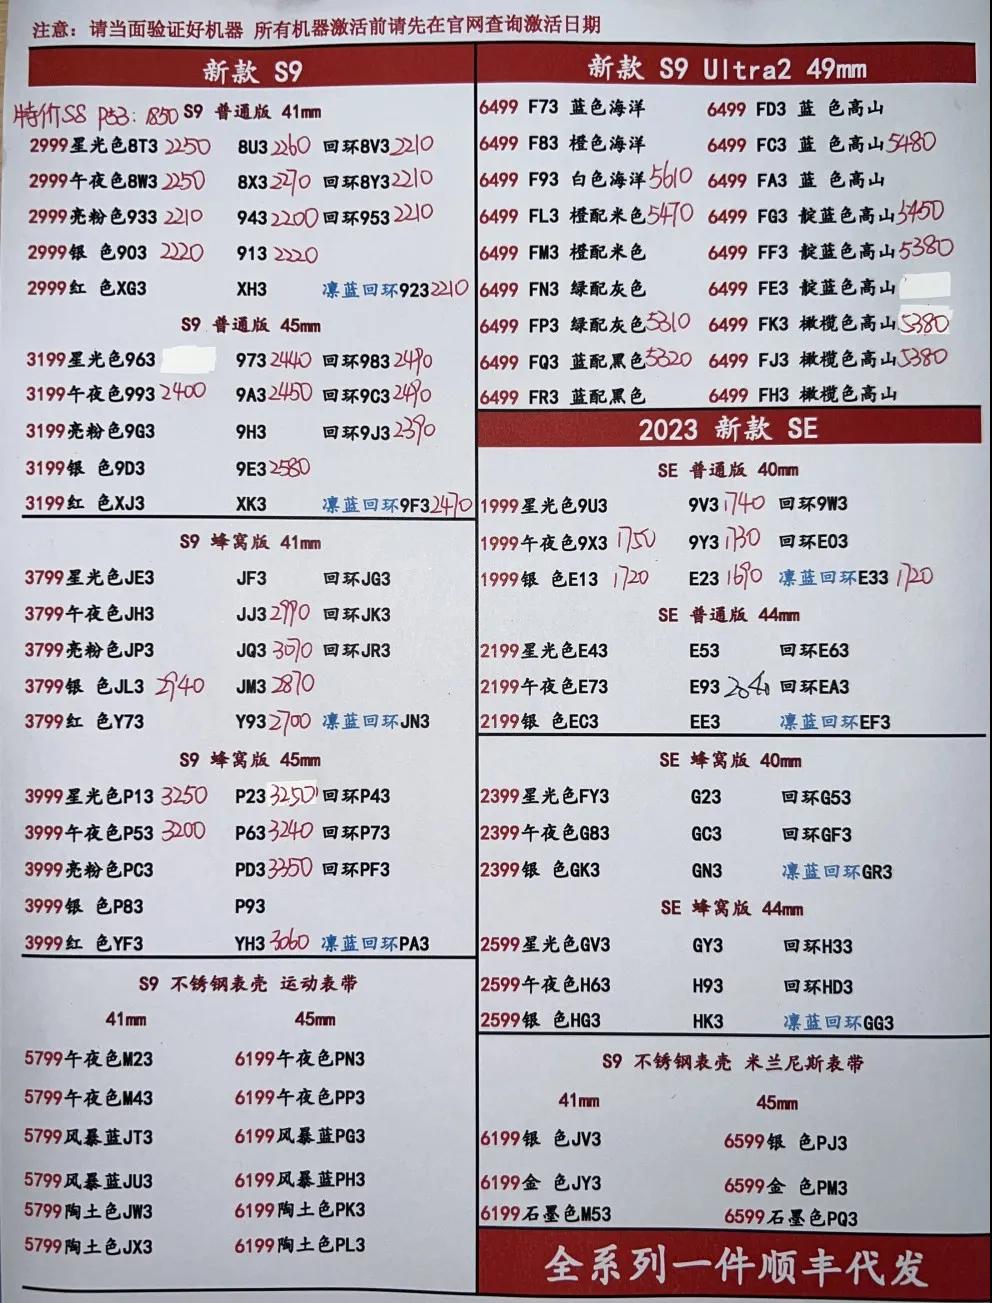 注意：请当面验证好机器 所有机器激活前请先在官网查询激活日期
新款 S9
特价S8 P53：1850 S9 普通版 41mm
2999星光色8T3 2250 8U3 2260 回环8V3 2210
2999午夜色8W3 2250 8X3 2270 回环8Y3 2210
2999亮粉色933 2210 943 2200 回环953 2210
2999银 色903 2220 913 2220
2999红 色XG3 XH3 凛蓝回环923 2210
S9 普通版 45mm
3199星光色963 973 2440 回环983 2490
3199午夜色993 2400 9A3 2450 回环9C3 2490
3199亮粉色9G3 9H3 回环9J3 2390
3199银 色9D3 9E3 2580
3199红 色XJ3 XK3 凛蓝回环9F3 2470
S9 蜂窝版 41mm
3799星光色JE3 JF3 回环JG3
3799午夜色JH3 JJ3 2990 回环JK3
3799亮粉色JP3 JQ3 3070 回环JR3
3799银 色JL3 2940 JM3 2870
3799红 色Y73 Y93 2700 凛蓝回环JN3
S9 蜂窝版 45mm
3999星光色P13 3250 P23 3250 回环P43
3999午夜色P53 3200 P63 3240 回环P73
3999亮粉色PC3 PD3 3350 回环PF3
3999银 色P83 P93
3999红 色YF3 YH3 3060 凛蓝回环PA3
S9 不锈钢表壳 运动表带
41mm 45mm
5799午夜色M23 6199午夜色PN3
5799午夜色M43 6199午夜色PP3
5799风暴蓝JT3 6199风暴蓝PG3
5799风暴蓝JU3 6199风暴蓝PH3
5799陶土色JW3 6199陶土色PK3
5799陶土色JX3 6199陶土色PL3
新款 S9 Ultra2 49mm
6499 F73 蓝色海洋 6499 FD3 蓝 色高山
6499 F83 橙色海洋 6499 FC3 蓝 色高山 5480
6499 F93 白色海洋 5610 6499 FA3 蓝 色高山
6499 FL3 橙配米色 5470 6499 FG3 靛蓝色高山 5450
6499 FM3 橙配米色 6499 FF3 靛蓝色高山 5380
6499 FN3 绿配灰色 6499 FE3 靛蓝色高山
6499 FP3 绿配灰色 5310 6499 FK3 橄榄色高山 5380
6499 FQ3 蓝配黑色 5320 6499 FJ3 橄榄色高山 5380
6499 FR3 蓝配黑色 6499 FH3 橄榄色高山
2023 新款 SE
SE 普通版 40mm
1999星光色9U3 9V3 1740 回环9W3
1999午夜色9X3 1750 9Y3 1730 回环E03
1999银 色E13 1720 E23 1690 凛蓝回环E33 1720
SE 普通版 44mm
2199星光色E43 E53 回环E63
2199午夜色E73 E93 回环EA3
2199银 色EC3 EE3 凛蓝回环EF3
SE 蜂窝版 40mm
2399星光色FY3 G23 回环G53
2399午夜色G83 GC3 回环GF3
2399银 色GK3 GN3 凛蓝回环GR3
SE 蜂窝版 44mm
2599星光色GV3 GY3 回环H33
2599午夜色H63 H93 回环HD3
2599银 色HG3 HK3 凛蓝回环GG3
S9 不锈钢表壳 米兰尼斯表带
41mm 45mm
6199银 色JV3 6599银 色PJ3
6199金 色JY3 6599金 色PM3
6199石墨色M53 6599石墨色PQ3
全系列一件顺丰代发